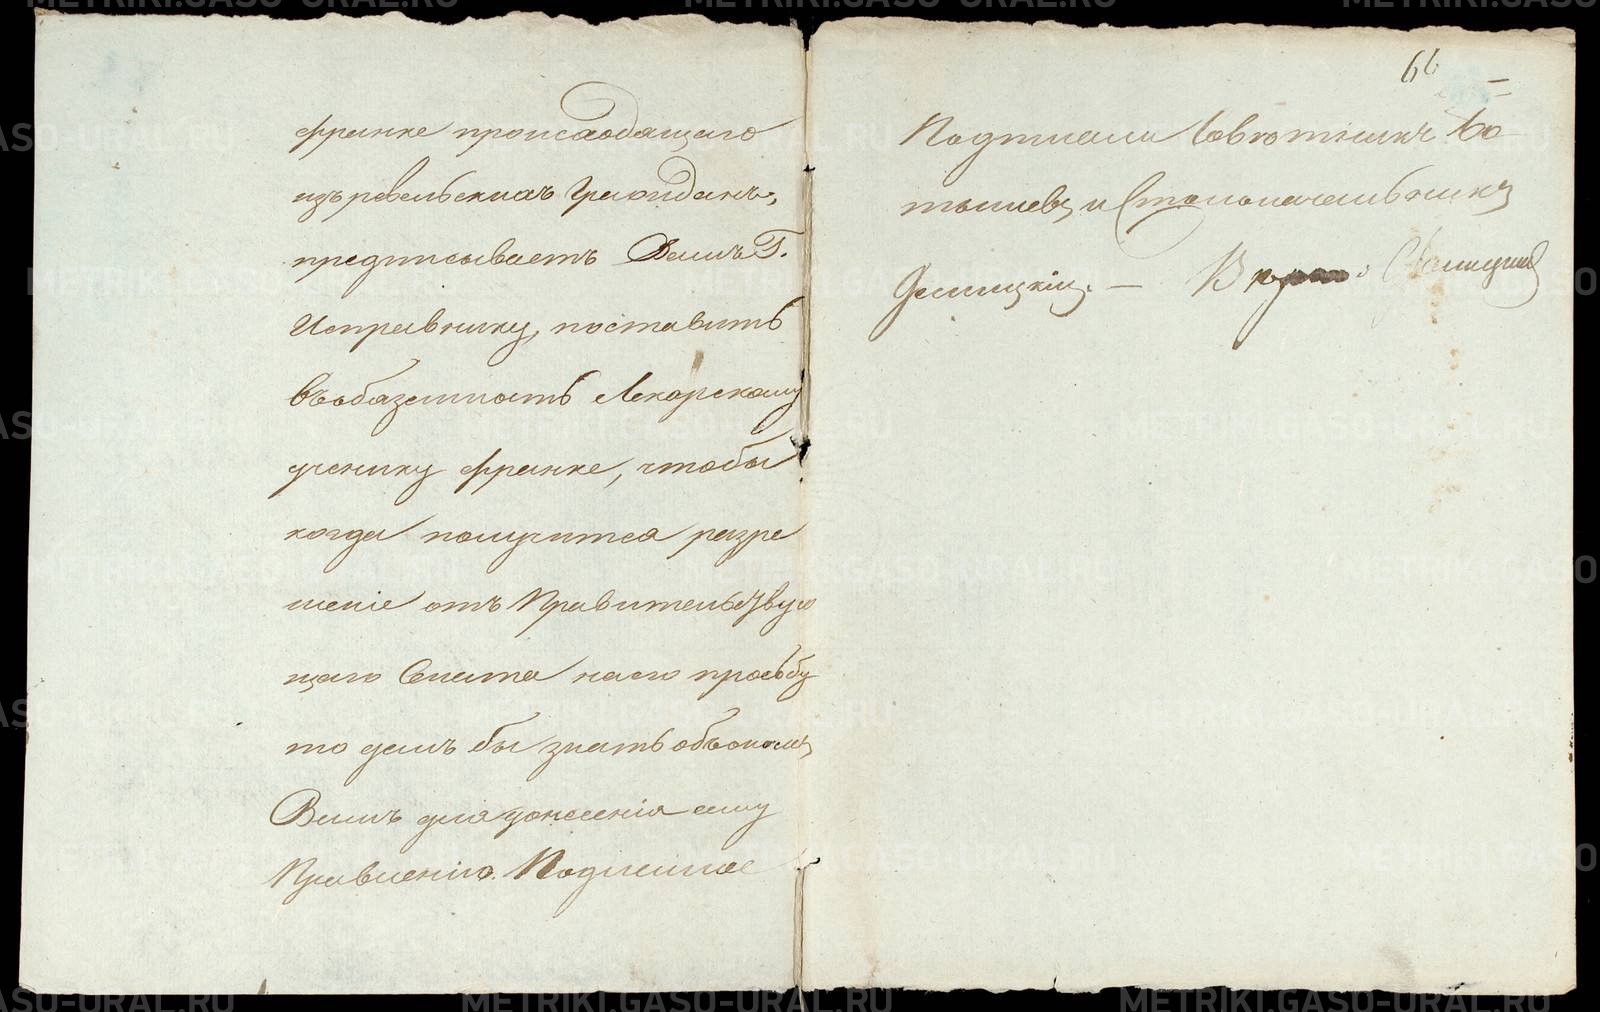 Франке происходящаго
изъ ревельскихъ гражданъ,
предписываетъ Вамъ Г.
Исправнику, поставить
въ обязанность Лекарскому
ученику Франке, чтобы
когда получится разре
шеніе отъ Правительствую
щаго Сената на его прозьбу
то далъ бы знать объ ономъ
Вамъ для донесенія сему
Правленію. Подлинное
66
Подписали Советникъ
и Столоначальникъ
METRIKI.GASO-URAL.RU